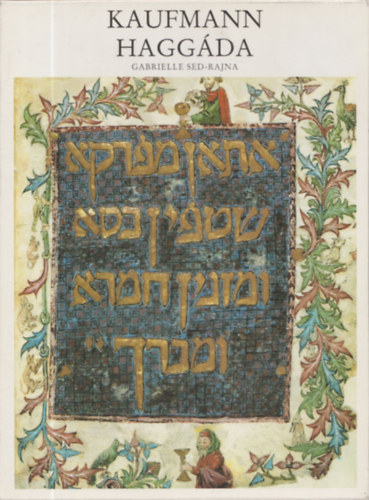 KAUFMANN
HAGGÁDA
GABRIELLE SED-RAJNA
אתאן מפרקא
שטפין כסא
ומזגין חמרא
ומברך